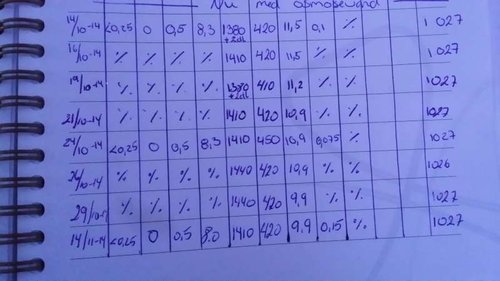 Nu med osmosevand
14/10-14 <0,25 0 0,5 8,3 1380 +2dl 420 11,5 0,1 % 1027
16/10-14 % % % % 1410 420 11,5 % % 1027
19/10-14 % % % % 1380 +2dl 410 11,2 % % 1027
21/10-14 % % % % 1410 420 10,9 % % 1027
24/10-14 <0,25 0 0,5 8,3 1410 450 10,9 0,075 % 1027
26/10-14 % % % % 1440 420 10,9 % % 1026
29/10-14 % % % % 1440 420 9,9 % % 1027
14/11-14 <0,25 0 0,5 8.0 1410 420 9,9 0,15 % 1027